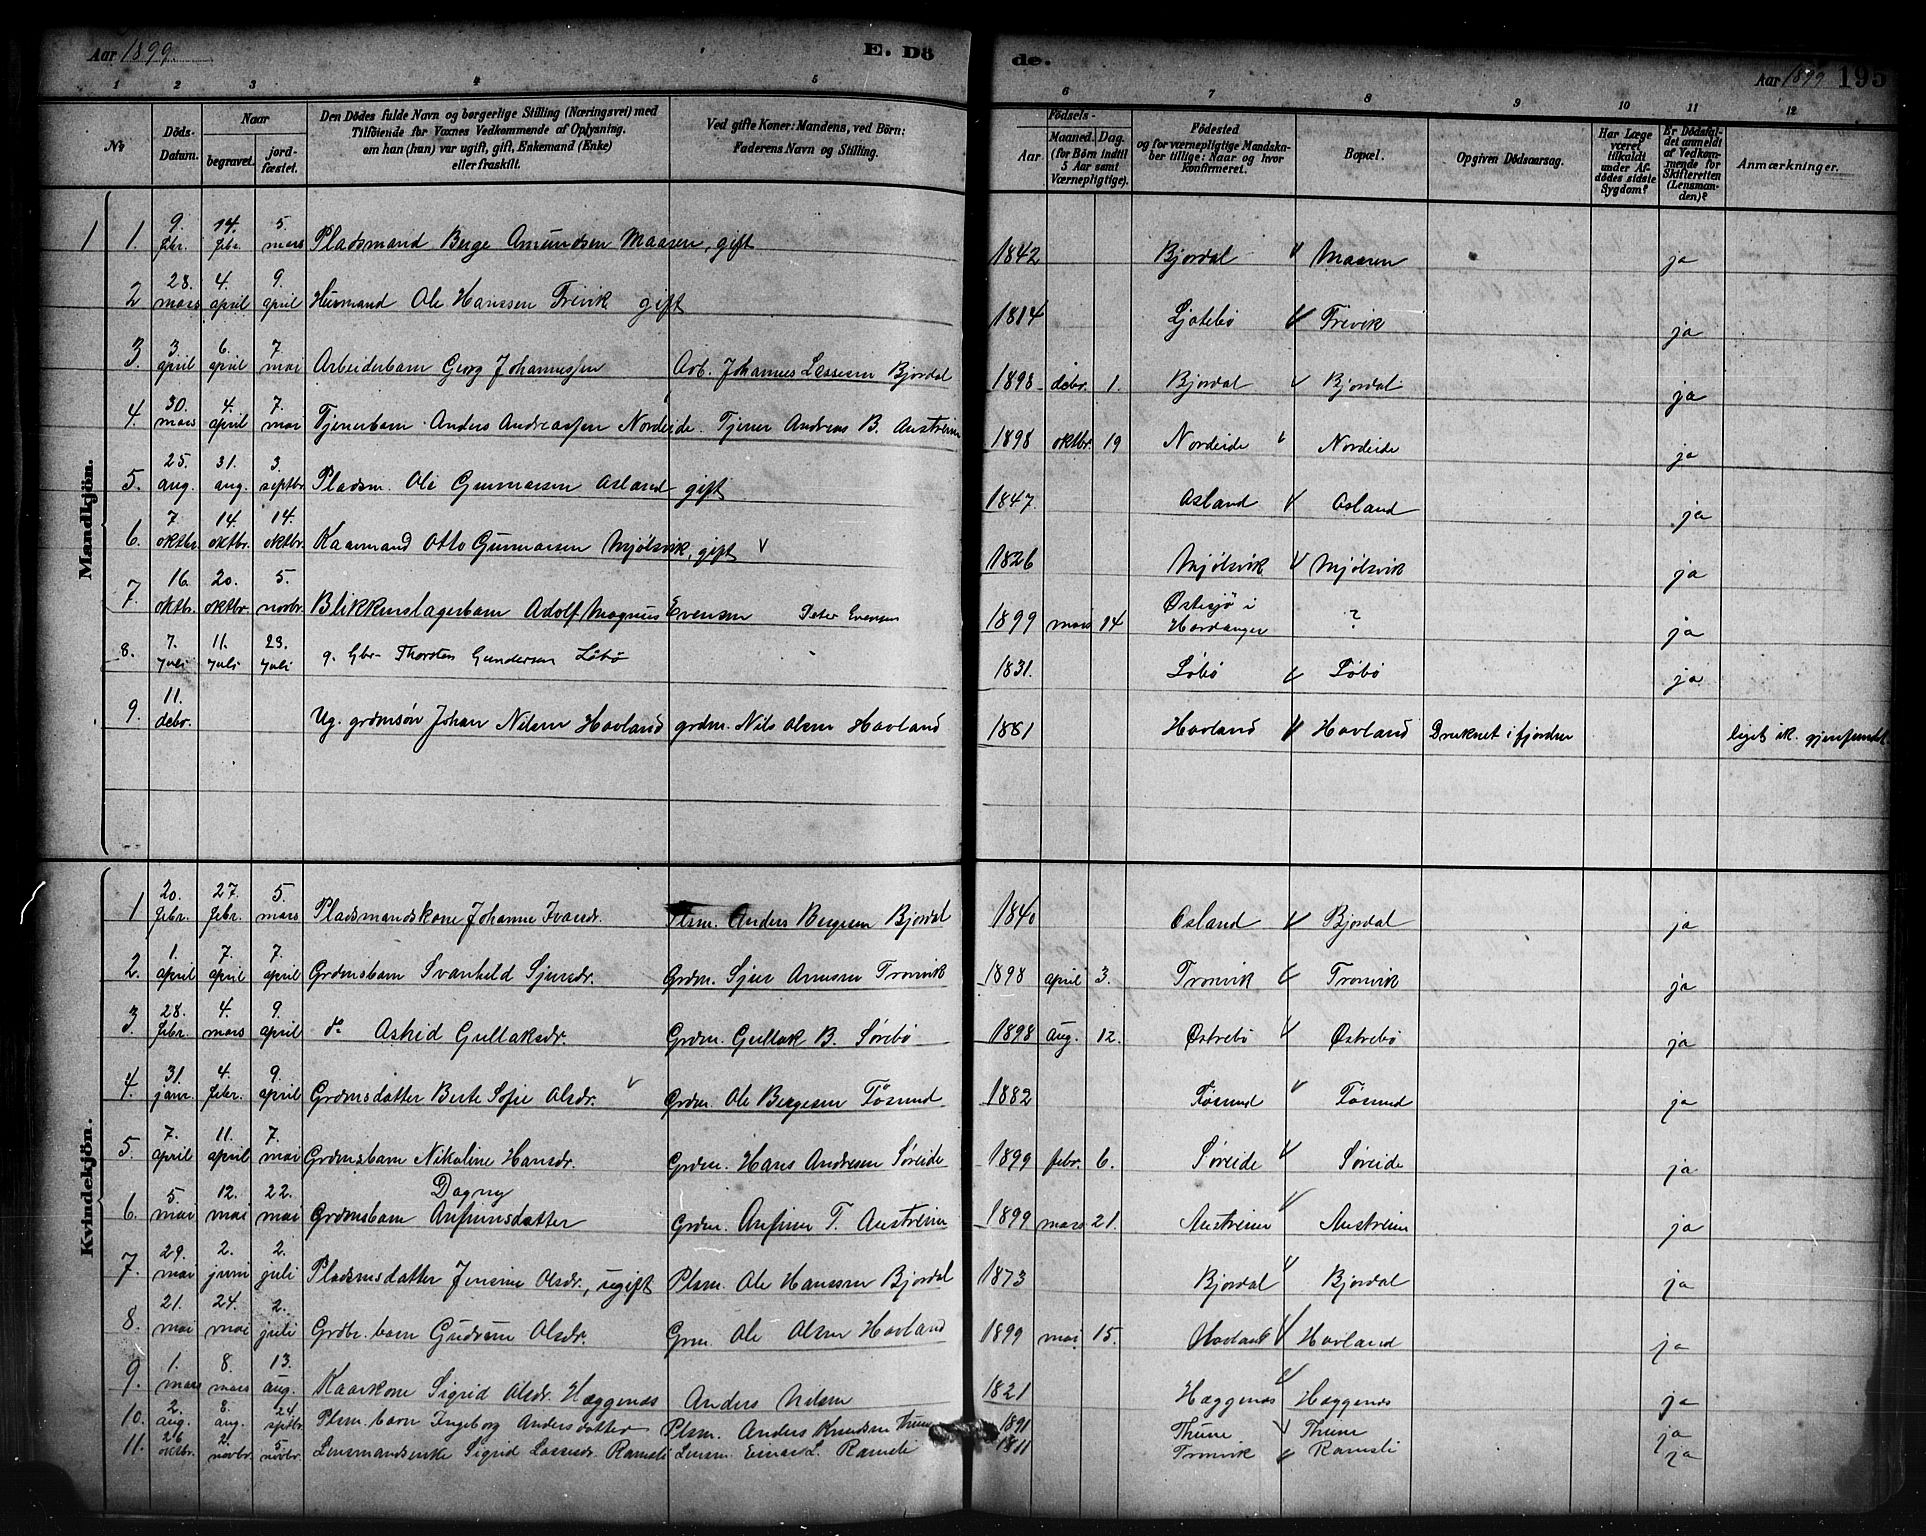 Aar 1899
E. Dö
de.
Aar 1899
195
1 2 3 4 5 6 7 8 9 10 11 12
No
Döds-Datum.
Naar
begravet.
jord-fæstet.
Den Dödes fulde Navn og borgerlige Stilling (Næringsvei) med
Tilföiende for Voxnes Vedkommende af Oplysning.
om han (hun) var ugift, gift, Enkemand (Enke)
eller fraskilt.
Ved gifte Koner: Mandens, ved Börn:
Faderens Navn og Stilling.
Födsels-
Aar
Maaned. Dag.
(for Börn indtil
5 Aar samt
Værnepligtige).
Födested
og for værnepligtige Mandska-
ber tillige: Naar og hvor
konfirmeret.
Bopæl.
Opgiven Dödsaarsag.
Har Læge
været
tilkaldt
under Af-
dödes sidste
Sygdom?
Er Dödsfal-
det anmeldt
af Vedkom-
mende for
Skifteretten
(Lensman-
den)?
Anmærkninger.
Mandkjön.
1 1. 9. febr. 14. febr. 5. mars Pladsmand Berge Amundsen Maasen, gift 1842 Bjordal Maaren ja
2 28. mars 4. april 9. april Husmand Ole Hanssen Trivik gift 1814 Ljotebø Trivik ja
3. 3. april 6. april 7. mai Arbeiderbarn Georg Johannessen Arb. Johannes Lassesen Bjordal 1898 debr. 1. Bjordal Bjordal ja
4. 30. mars 4. april 7. mai Tjenerbarn Anders Andreassen Nordeide. Tjener Andreas B. Austreim 1898 oktbr. 19 Nordeide Nordeide ja
5. 25. aug. 31. aug. 3. septbr. Pladsm. Ole Gunnarsen Osland gift 1847 Osland Osland ja
6. 7. oktbr. 14. oktbr. 14. oktbr. Kaarmand Otto Gunnarsen Mjølsvik, gift 1826 Mjølsvik Mjølsvik ja
7. 16. oktbr. 20. oktbr. 5. novbr. Blikkenslagerbarn Adolf Magnus Evensen Peter Evensen 1899 mars 14 Østesjø i Hardanger ? ja
8. 7. juli 11. juli 23. juli g. Gbr. Thorsten Gundersen Løbø 1831. Løbø Løbø ja
9. 11. debr. Ug. grdmsøn Johan Nilsen Hovland grdm. Nils Olsen Hovland 1881 Hovland Hovland Druknet i fjorden liget ik. gjenfundet
Kvindekjön.
1 20. febr. 27. febr. 5. mars Pladsmandskone Johanne Ivarsdr. Plsm. Anders Bergesen Bjordal 1840 Osland Bjordal ja
2. 1. april 7. april 7. april Grdmsbarn Svanhild Sjursdr. Grdm. Sjur Arnesen Tronvik 1898 april 3. Tronvik Tronvik ja
3. 28. febr. 4. mars 9. april do Astrid Gullaksdr. Grdm. Gullak B. Sørebø 1898 aug. 12. Østrebø Østrebø ja
4. 31. janr. 4. febr. 9. april Grdmsdatter Berte Sofie Olsdr. Grdm. Ole Bergesen Tøsund 1882 Tøsund Tøsund ja
5. 7. april 11. april 7. mai Grdmsbarn Nikoline Hansdr. Grdm. Hans Andresen Søreide 1899 febr. 6. Søreide Søreide ja
6. 5. mai 12. mai 22. mai Grdmsbarn Dagny Anfinnsdatter Grdm. Anfinn T. Austreim 1899 mars 21. Austreim Austreim ja
7. 29. mai 2. juni 2. juli Pladsmsdatter Jensine Olsdr., ugift Plsm. Ole Hanssen Bjordal 1873 Bjordal Bjordal ja
8. 21. mai 24. mai 2. juli Grdbr. barn Gudrun Olsdr. Grm. Ole Olsen Hovland 1899 mai 15. Hovland Hovland ja
9. 1. mars 8. mars 13. aug. Kaarkone Sigrid Olsdr. Hæggenæs Anders Nilsen 1821 Hæggenæs Hæggenæs ja
10. 2. aug. 8. aug. 24. septbr. Plsm. barn Ingeborg Andersdatter Plsm. Anders Knudsen Thune 1891 Thune Thune ja
11. 26. oktbr. 2. novbr. 5. novbr. Lensmandsenke Sigrid Lassesdr. Ramsli Lensm. Einar L. Ramsli 1811 Tronvik Ramsli ja